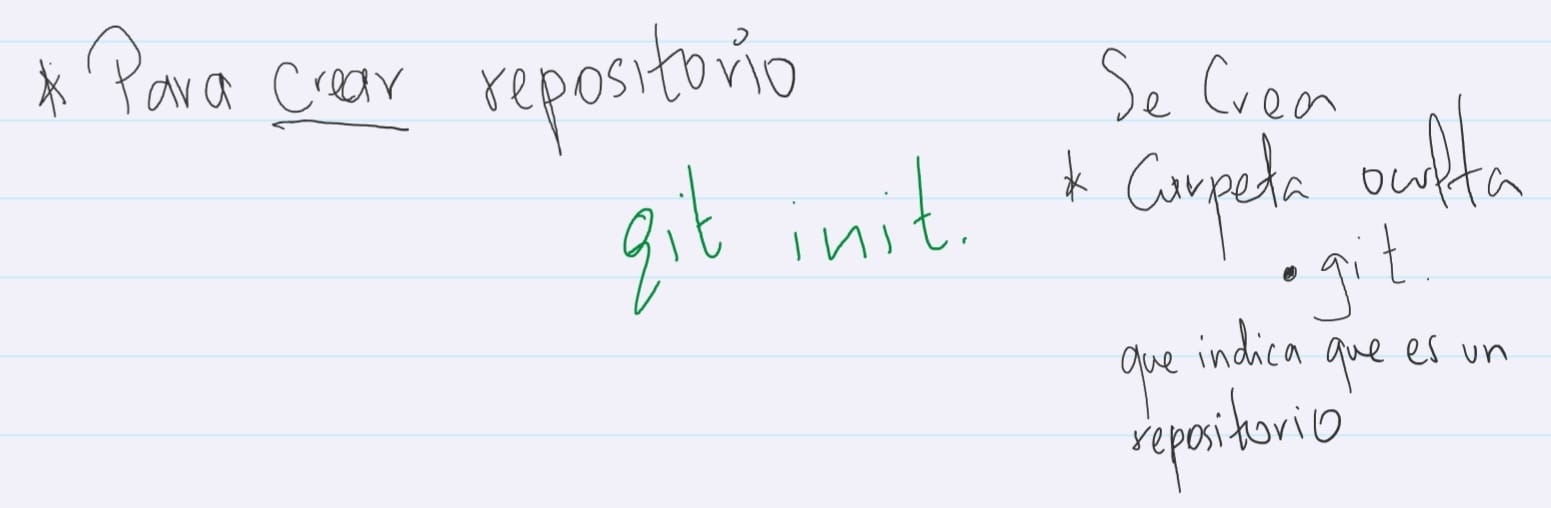 * Para crear repositorio
git init.
Se Crea
* Carpeta oculta
.git.
que indica que es un
repositorio